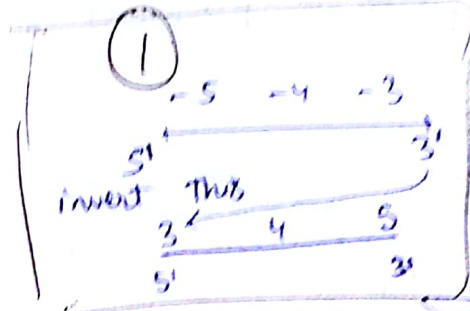 1
-5 -4 -3
5' 3'
invert This
3 4 5
5' 3'